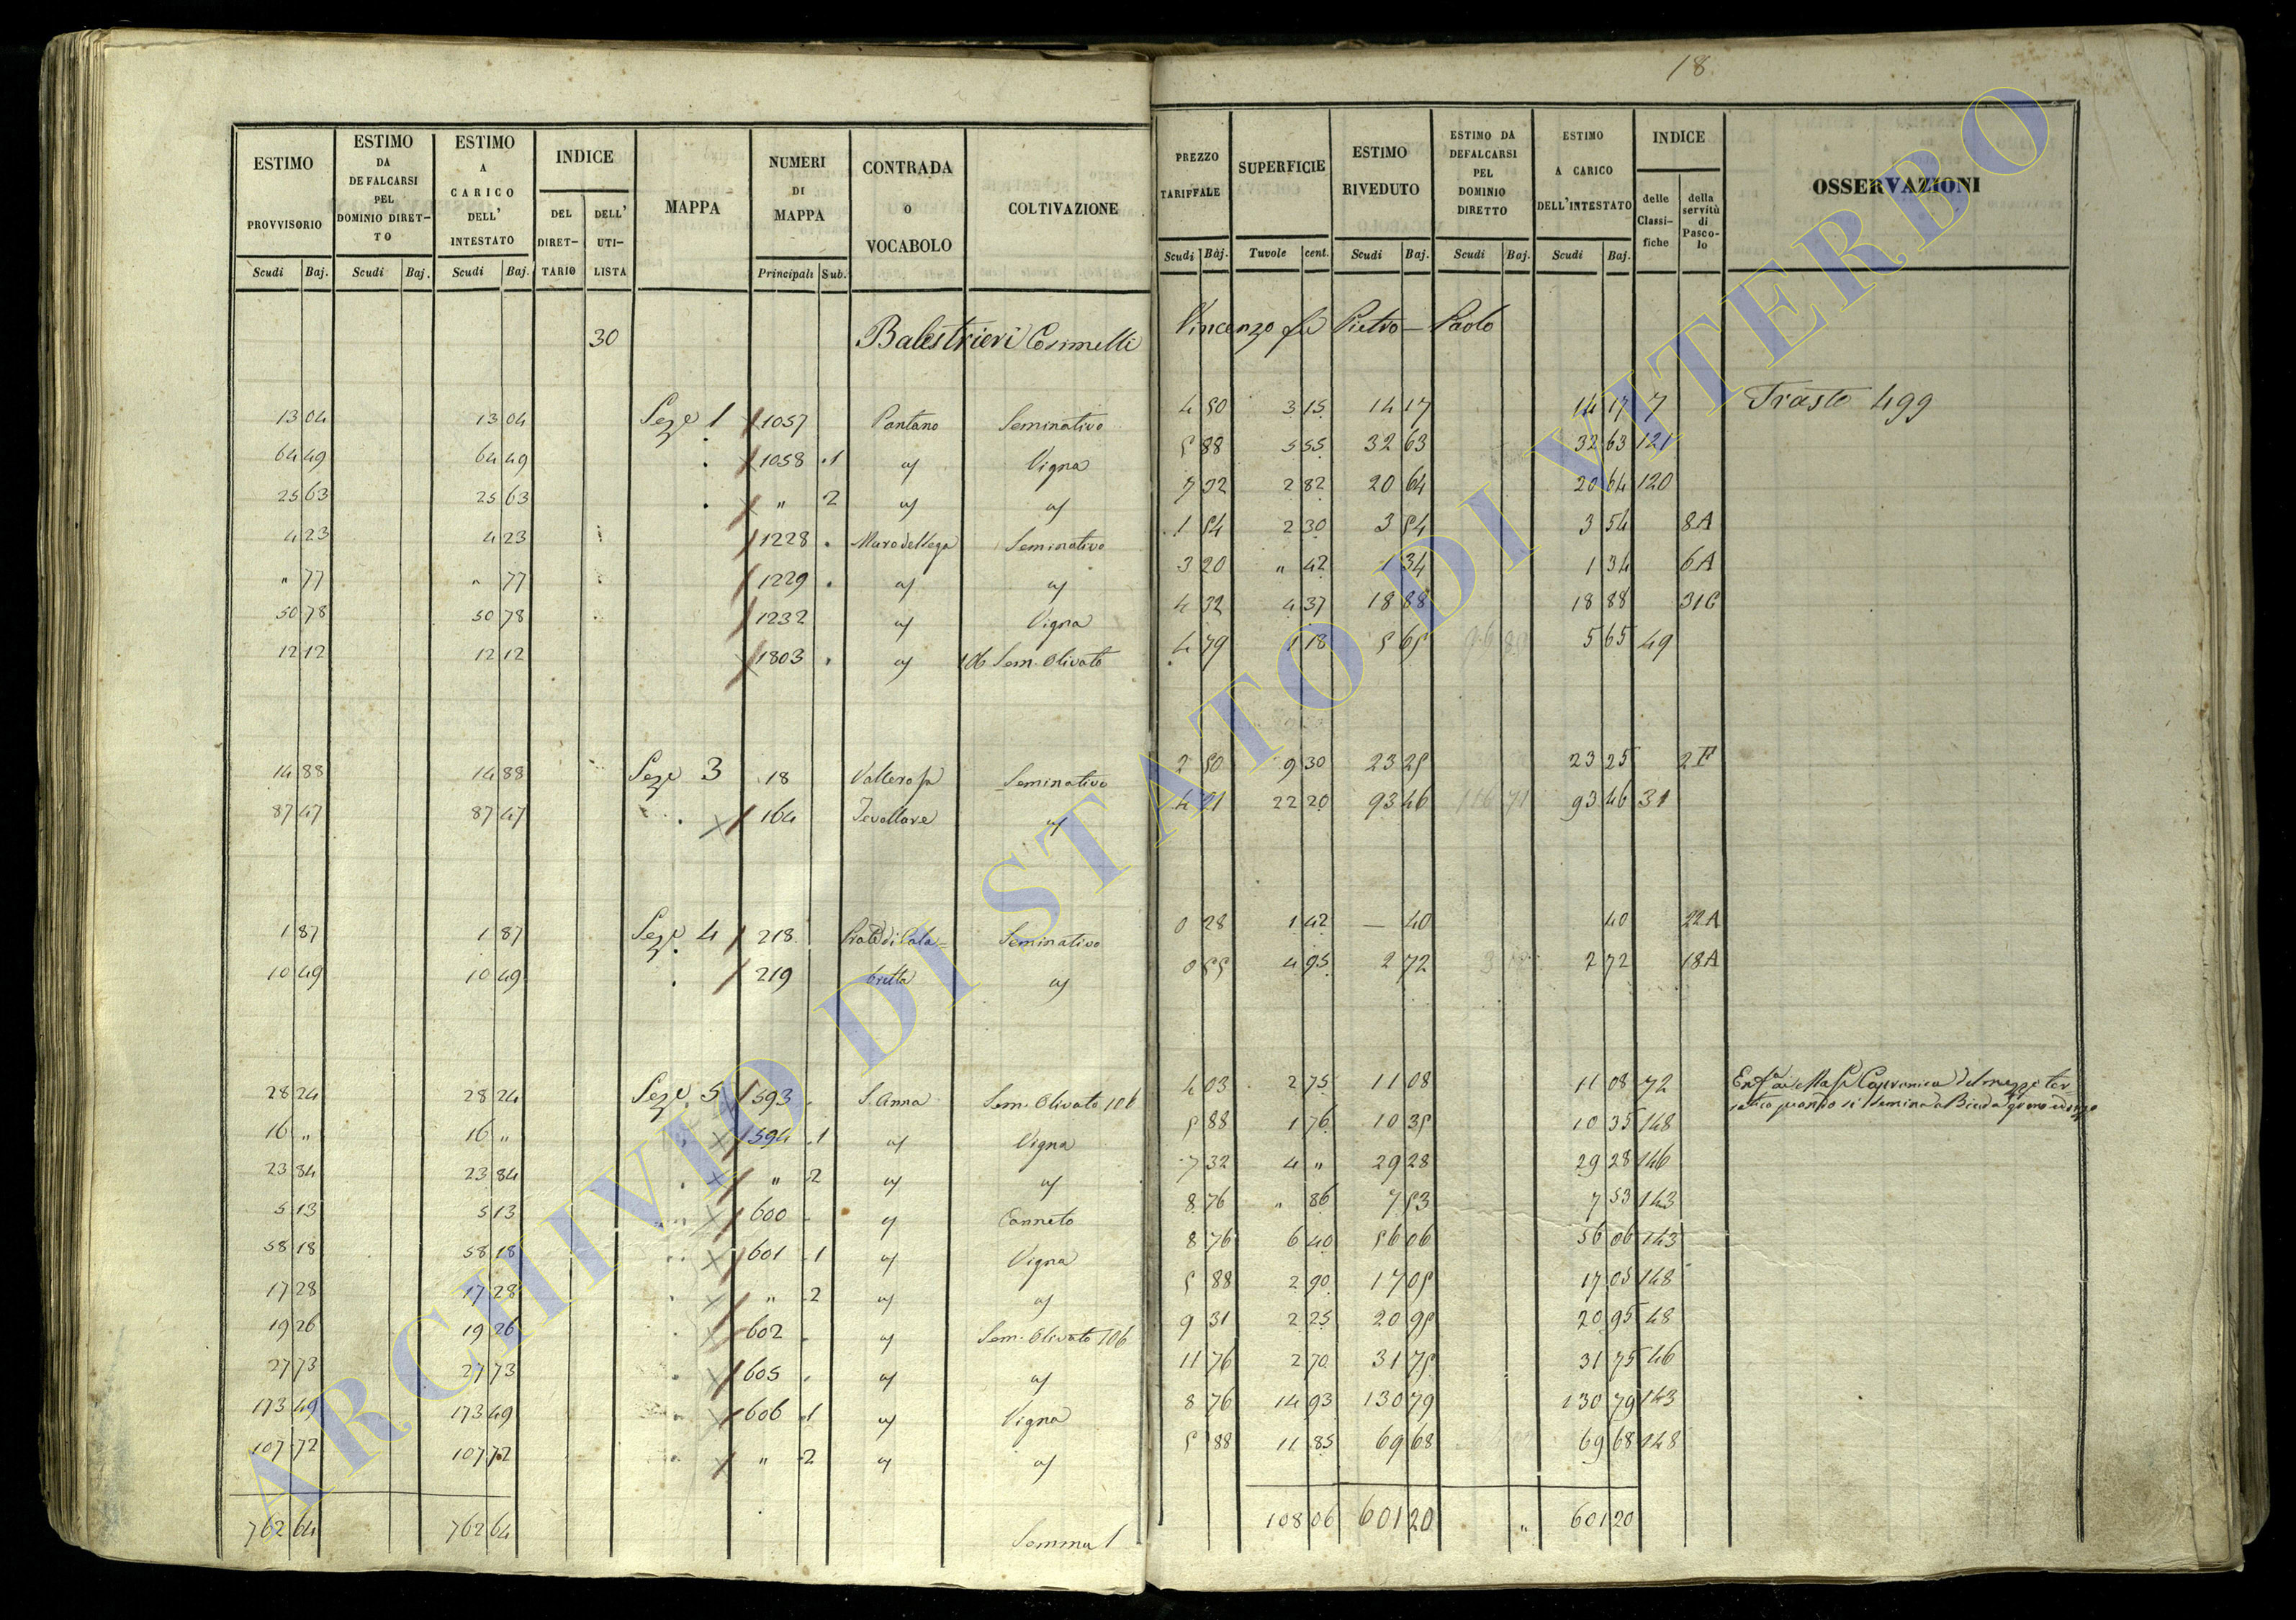 18
ESTIMO PROVVISORIO | ESTIMO DA DEFALCARSI PEL DOMINIO DIRET-TO | ESTIMO A CARICO DELL' INTESTATO | INDICE | MAPPA | NUMERI DI MAPPA | CONTRADA O VOCABOLO | COLTIVAZIONE | PREZZO TARIFFALE | SUPERFICIE | ESTIMO RIVEDUTO | ESTIMO DA DEFALCARSI PEL DOMINIO DIRETTO | ESTIMO A CARICO DELL'INTESTATO | INDICE | OSSERVAZIONI
DEL DIRET-TARIO | DELL' UTI-LISTA | delle Classi-fiche | della servitù di Pasco-lo
Scudi Baj. | Scudi Baj. | Scudi Baj. | Principali Sub. | Scudi Baj. | Tavole cent. | Scudi Baj. | Scudi Baj. | Scudi Baj.
30 Balestrieri Cosimelli Vincenzo fu Pietro-Paolo
13 04 13 04 Seze 1 1057 Pantano Seminativo 4 50 3 15 14 17 14 17 7 Trasto 499
64 49 64 49 1058 1 " Vigna 5 88 5 55 32 63 32 63 121
25 63 25 63 " 2 " " 7 32 2 82 20 64 20 64 120
4 23 4 23 1228 Seminativo 1 54 2 30 3 54 3 54 8A
" 77 " 77 1229 " " 3 20 " 42 1 34 1 34 6A
50 78 50 78 1232 " Vigna 4 32 4 37 18 88 18 88 31C
12 12 12 12 1803 " 106 Sem. Olivato 4 79 1 18 5 65 5 65 49
14 88 14 88 Seze 3 18 Seminativo 2 50 9 30 23 25 23 25 2F
87 47 87 47 164 " 4 21 22 20 93 46 93 46 31
1 87 1 87 Seze 4 218 Prato di Cala= Seminativo 0 28 1 42 — 40 40 22A
10 49 10 49 219 bretta " 0 55 4 95 2 72 2 72 18A
28 24 28 24 Seze 5 593 S. Anna Sem. Olivato 106 4 03 2 75 11 08 11 08 72
16 " 16 " 594 1 " Vigna 5 88 1 76 10 35 10 35 148
23 84 23 84 " 2 " " 7 32 4 " 29 28 29 28 146
5 13 5 13 600 " Canneto 8 76 " 86 7 53 7 53 143
58 18 58 18 601 1 " Vigna 8 76 6 40 56 06 56 06 143
17 28 17 28 " 2 " " 5 88 2 90 17 05 17 05 148
19 26 19 26 602 " Sem. Olivato 106 9 31 2 25 20 95 20 95 48
27 73 27 73 605 " " 11 76 2 70 31 75 31 75 46
173 49 173 49 606 1 " Vigna 8 76 14 93 130 79 130 79 143
107 72 107 72 " 2 " " 5 88 11 85 69 68 69 68 148
762 64 762 64 Somma 1 108 06 601 20 " 601 20
ARCHIVIO DI STATO DI VITERBO